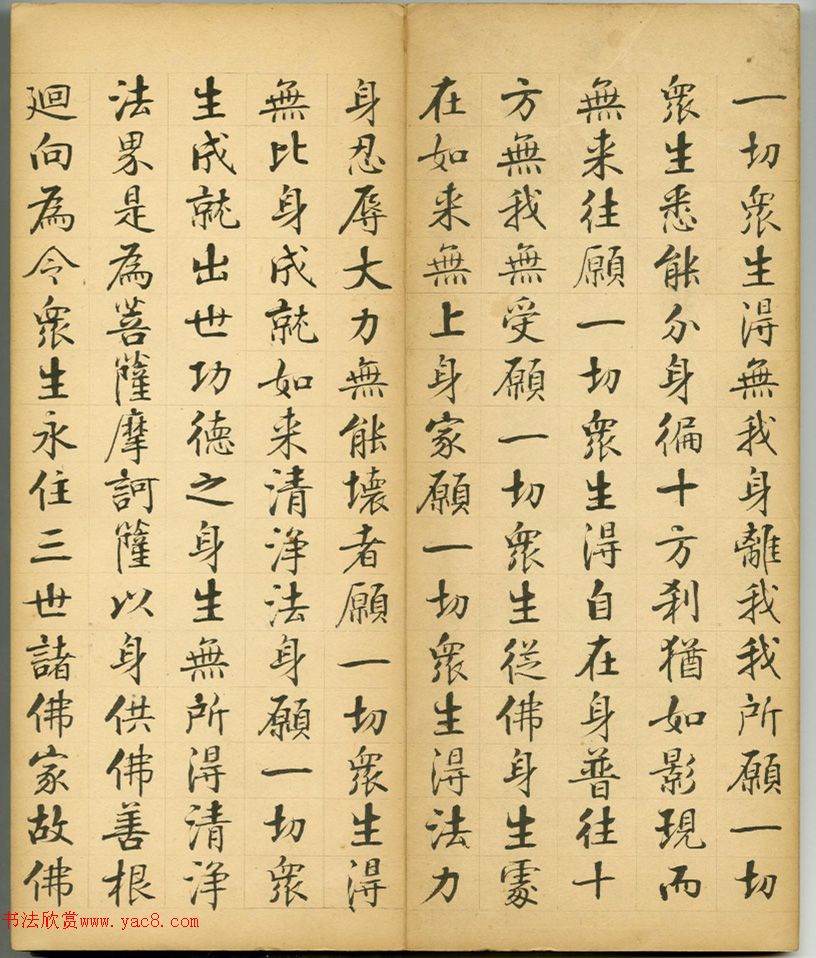 一切衆生得無我身離我我所願一切
衆生悉能分身徧十方刹猶如影現而
無来往願一切衆生得自在身普往十
方無我無受願一切衆生從佛身生處
在如来無上身家願一切衆生得法力
身忍辱大力無能壞者願一切衆生得
無比身成就如来清淨法身願一切衆
生成就出世功德之身生無所得清淨
法界是為菩薩摩訶薩以身供佛善根
廻向為令衆生永住三世諸佛家故佛
书法欣赏www.yac8.com